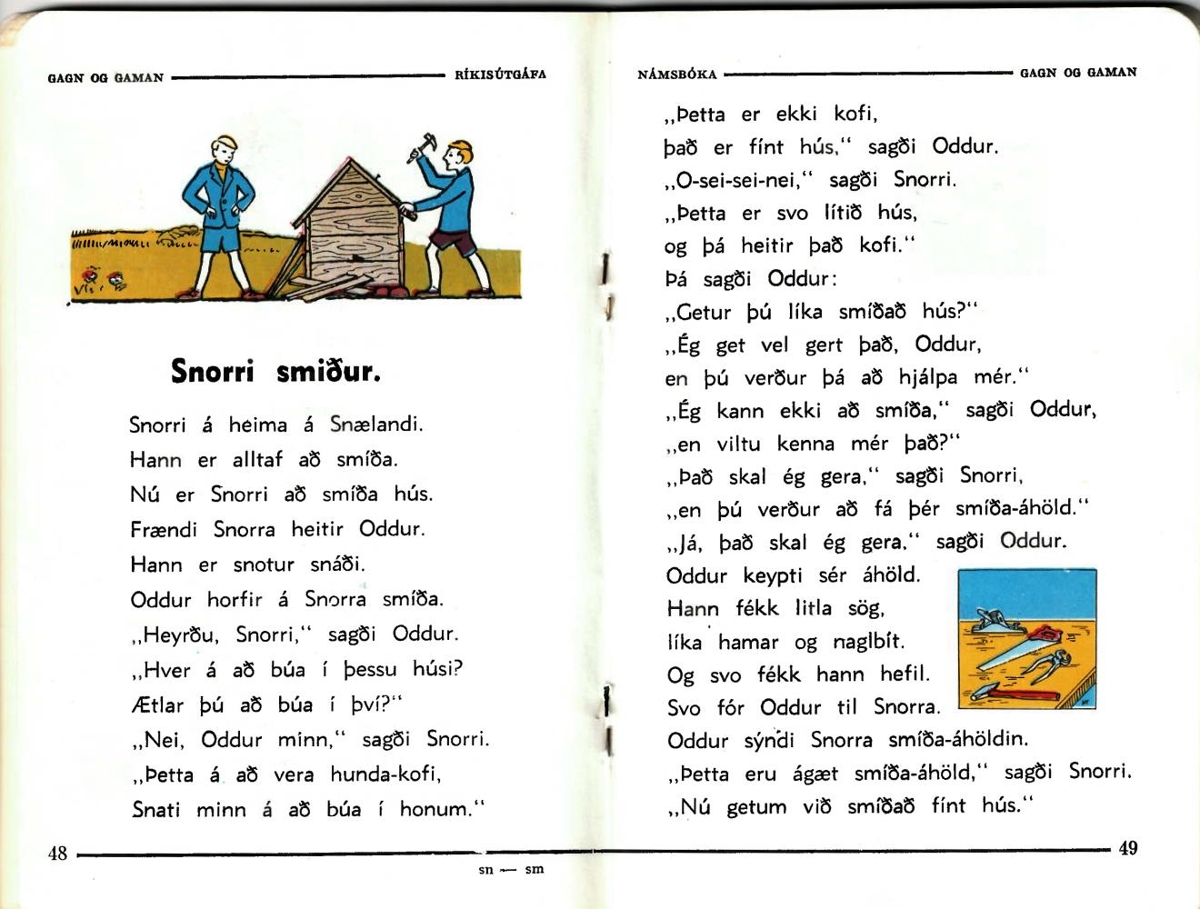 GAGN OG GAMAN RÍKISÚTGÁFA
Snorri smiður.
Snorri á heima á Snælandi.
Hann er alltaf að smíða.
Nú er Snorri að smíða hús.
Frændi Snorra heitir Oddur.
Hann er snotur snáði.
Oddur horfir á Snorra smíða.
„Heyrðu, Snorri,“ sagði Oddur.
„Hver á að búa í þessu húsi?
Ætlar þú að búa í því?“
„Nei, Oddur minn,“ sagði Snorri.
„Þetta á að vera hunda-kofi,
Snati minn á að búa í honum.“
48
sn — sm
NÁMSBÓKA GAGN OG GAMAN
„Þetta er ekki kofi,
það er fínt hús,“ sagði Oddur.
„O-sei-sei-nei,“ sagði Snorri.
„Þetta er svo lítið hús,
og þá heitir það kofi.“
Þá sagði Oddur:
„Getur þú líka smíðað hús?“
„Ég get vel gert það, Oddur,
en þú verður þá að hjálpa mér.“
„Ég kann ekki að smíða,“ sagði Oddur,
„en viltu kenna mér það?“
„Það skal ég gera,“ sagði Snorri,
„en þú verður að fá þér smíða-áhöld.“
„Já, það skal ég gera,“ sagði Oddur.
Oddur keypti sér áhöld.
Hann fékk litla sög,
líka hamar og naglbít.
Og svo fékk hann hefil.
Svo fór Oddur til Snorra.
Oddur sýndi Snorra smíða-áhöldin.
„Þetta eru ágæt smíða-áhöld,“ sagði Snorri.
„Nú getum við smíðað fínt hús.“
49